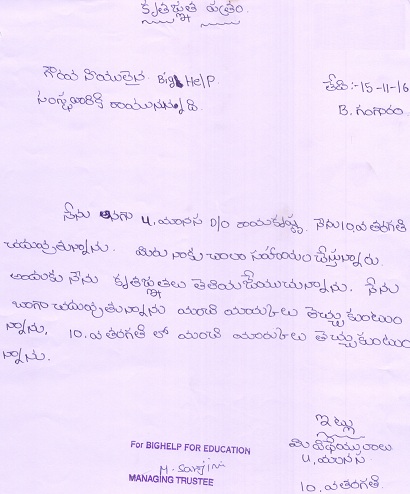 కృతజ్ఞత పత్రం.
గౌరవ నీయులైన Big Help
సంస్థవారికి రాయునన్నది.
తేది:- 15-11-16
B. గంగారం
నేను అనగా U. మానస D/O రామకృష్ణ. నేను 10.వ తరగతి
చదువుతున్నాను. మీరు నాకు చాలా సహాయం చేస్తున్నారు.
అందుకు నేను కృతజ్ఞతలు తెలియజేయుచున్నాను. నేను
బాగా చదువుతున్నాను మంచి మార్కులు తెచ్చుకుంటు
న్నాను, 10.వ తరగతి లో మంచి మార్కులు తెచ్చుకుంటు
న్నాను.
ఇట్లు
మీ విధేయురాలు
U. మానస
10.వ తరగతి.
For BIGHELP FOR EDUCATION
M. Sarojini
MANAGING TRUSTEE